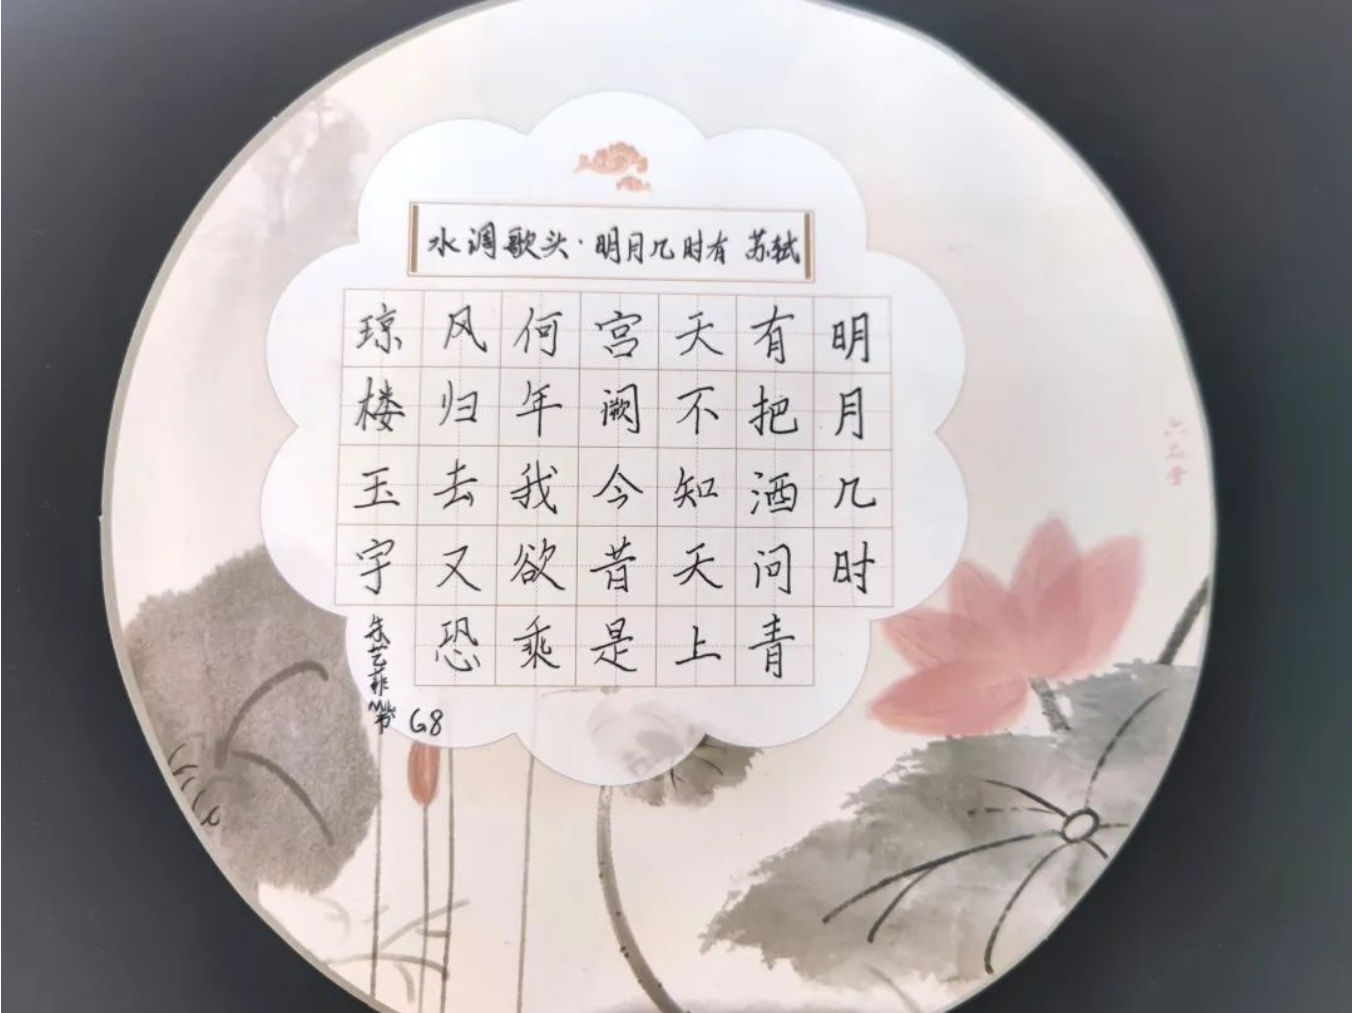 水调歌头·明月几时有 苏轼
明月几时
有把酒问青
天不知天上
宫阙今昔是
何年我欲乘
风归去又恐
琼楼玉宇
G8